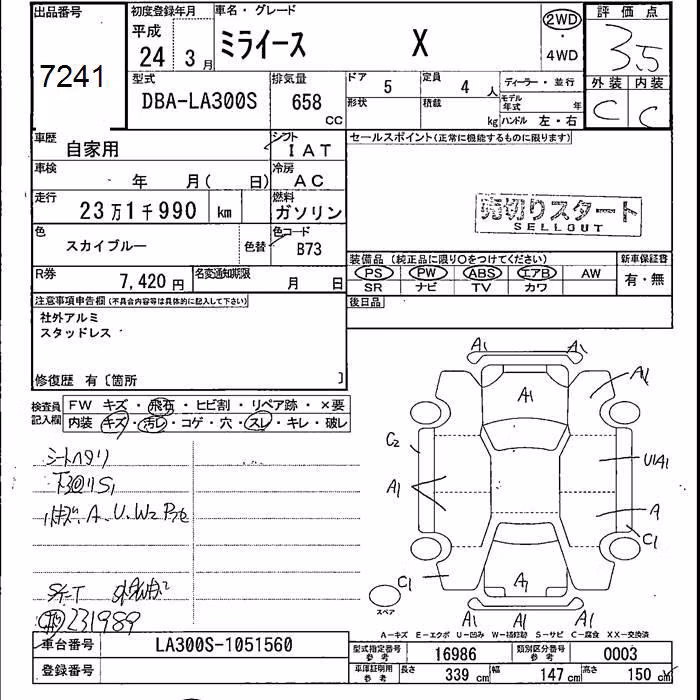 出品番号 初度登録年月 車名・グレード 評価点
7241 平成 24 3月 ミライース X 2WD・4WD 3.5
型式 排気量 ドア 5 定員 4人 ディーラー・並行 外装 内装
DBA-LA300S 658 CC 形状 積載 kg モデル年式 年 ハンドル 左・右 C C
車歴 自家用 シフト IAT セールスポイント(正常に機能するものに限ります)
車検 年 月( 日) 冷房 AC
走行 23万1千990 km 燃料 ガソリン 売切りスタート
SELLOUT
色 スカイブルー 色替 色コード B73
装備品(純正品に限り○をつけてください) 新車保証書
R券 7,420円 名変通知期限 月 日 PS PW ABS エアB AW 有・無
SR ナビ TV カワ
注意事項申告欄(不具合内容等は具体的に記入して下さい) 後日品
社外アルミ
スタッドレス
修復歴 有〔箇所 〕
検査員記入欄 FW キズ・飛石・ヒビ割・リペア跡・×要
内装 キズ・汚レ・コゲ・穴・スレ・キレ・破レ
シートヘタリ
下回りS1
A.U.W2
231989
A1 A1
A1 A1
C2 U1A1
A1 A
C1 C1
A1
スペア A1 A1 A1
A-キズ E-エクボ U-凹み W-補修跡 S-サビ C-腐食 XX-交換済
車台番号 LA300S-1051560 型式指定番号 参考 16986 類別区分番号 参考 0003
登録番号 車庫証明用 参考 長さ 339 cm 幅 147 cm 高さ 150 cm